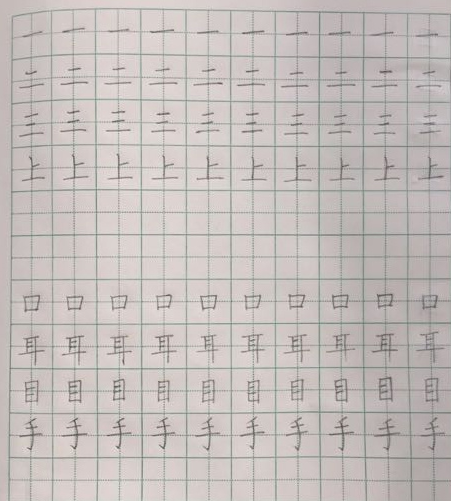 一 一 一 一 一 一 一 一 一 一
二 二 二 二 二 二 二 二 二 二
三 三 三 三 三 三 三 三 三 三
上 上 上 上 上 上 上 上 上 上
口 口 口 口 口 口 口 口 口 口
耳 耳 耳 耳 耳 耳 耳 耳 耳 耳
目 目 目 目 目 目 目 目 目 目
手 手 手 手 手 手 手 手 手 手